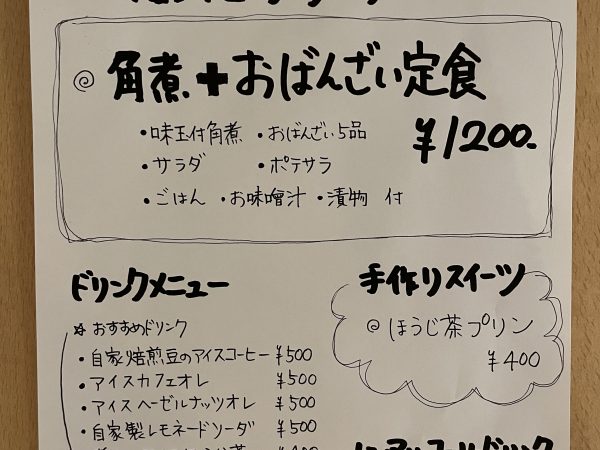 ◎ 角煮+おばんざい定食
・味玉付角煮 ・おばんざい5品
¥1200-
・サラダ ・ポテサラ
・ごはん ・お味噌汁 ・漬物 付
ドリンクメニュー
☆ おすすめドリンク
・自家焙煎豆のアイスコーヒー ¥500
・アイスカフェオレ ¥500
・アイスヘーゼルナッツオレ ¥500
・自家製レモネードソーダ ¥500
手作りスイーツ
◎ ほうじ茶プリン
¥400